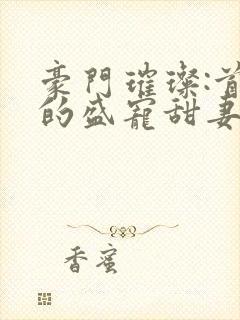 豪門璀璨:首
的盛寵甜妻
香蜜